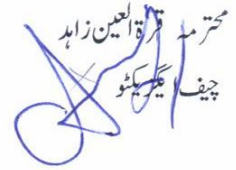 محترمہ قرۃ العین زاہد
چیف ایگزیکٹو